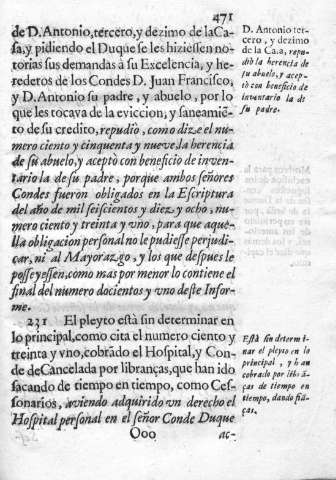 471
de D. Antonio, tercero, y dezimo de la Ca-
sa, y pidiendo el Duque se les hiziessen no-
torias sus demandas à su Excelencia, y he-
rederos de los Condes D. Juan Francisco,
y D. Antonio su padre, y abuelo, por lo
que les tocava de la eviccion, y saneamiẽ-
to de su credito, repudiò, como dize el nu-
mero ciento y cinquenta y nueve, la herencia
de su abuelo, y aceptò con beneficio de inven-
tario la de su padre, porque ambos señores
Condes fueron obligados en la Escriptura
del año de mil seiscientos y diez y ocho, nu-
mero ciento y treinta y vno, para que aque-
lla obligacion personal no le pudiesse perjudi-
car, ni al Mayorazgo, y los que despues le
posseyessen, como mas por menor lo contiene el
final del numero docientos y vno deste Infor-
me.
231 El pleyto està sin determinar en
lo principal, como cita el numero ciento y
treinta y vno, cobrãdo el Hospital, y Con-
de de Cancelada por libranças, que han ido
sacando de tiempo en tiempo, como Ces-
sionarios, aviendo adquirido vn derecho el
Hospital personal en el señor Conde Duque
Ooo ac-
D. Antonio ter-
cero, y dezimo
de la Casa, repu-
diò la herencia de
su abuelo, y acep-
tò con beneficio de
inventario la de
su padre.
Està sin determi-
nar el pleyto en lo
principal, y han
cobrado por librã-
ças de tiempo en
tiempo, dando fiã-
ças.